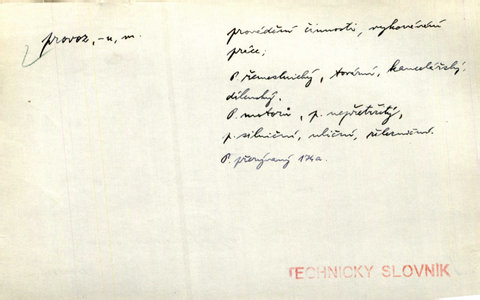 provoz, -u, m.
provádění činnosti, vykonávání
práce;
P. řemeslnický, tovární, kancelářský,
dílenský.
P. motorů, p. nepřetržitý,
p. silniční, uliční, železniční.
P. přerývaný
TECHNICKÝ SLOVNÍK